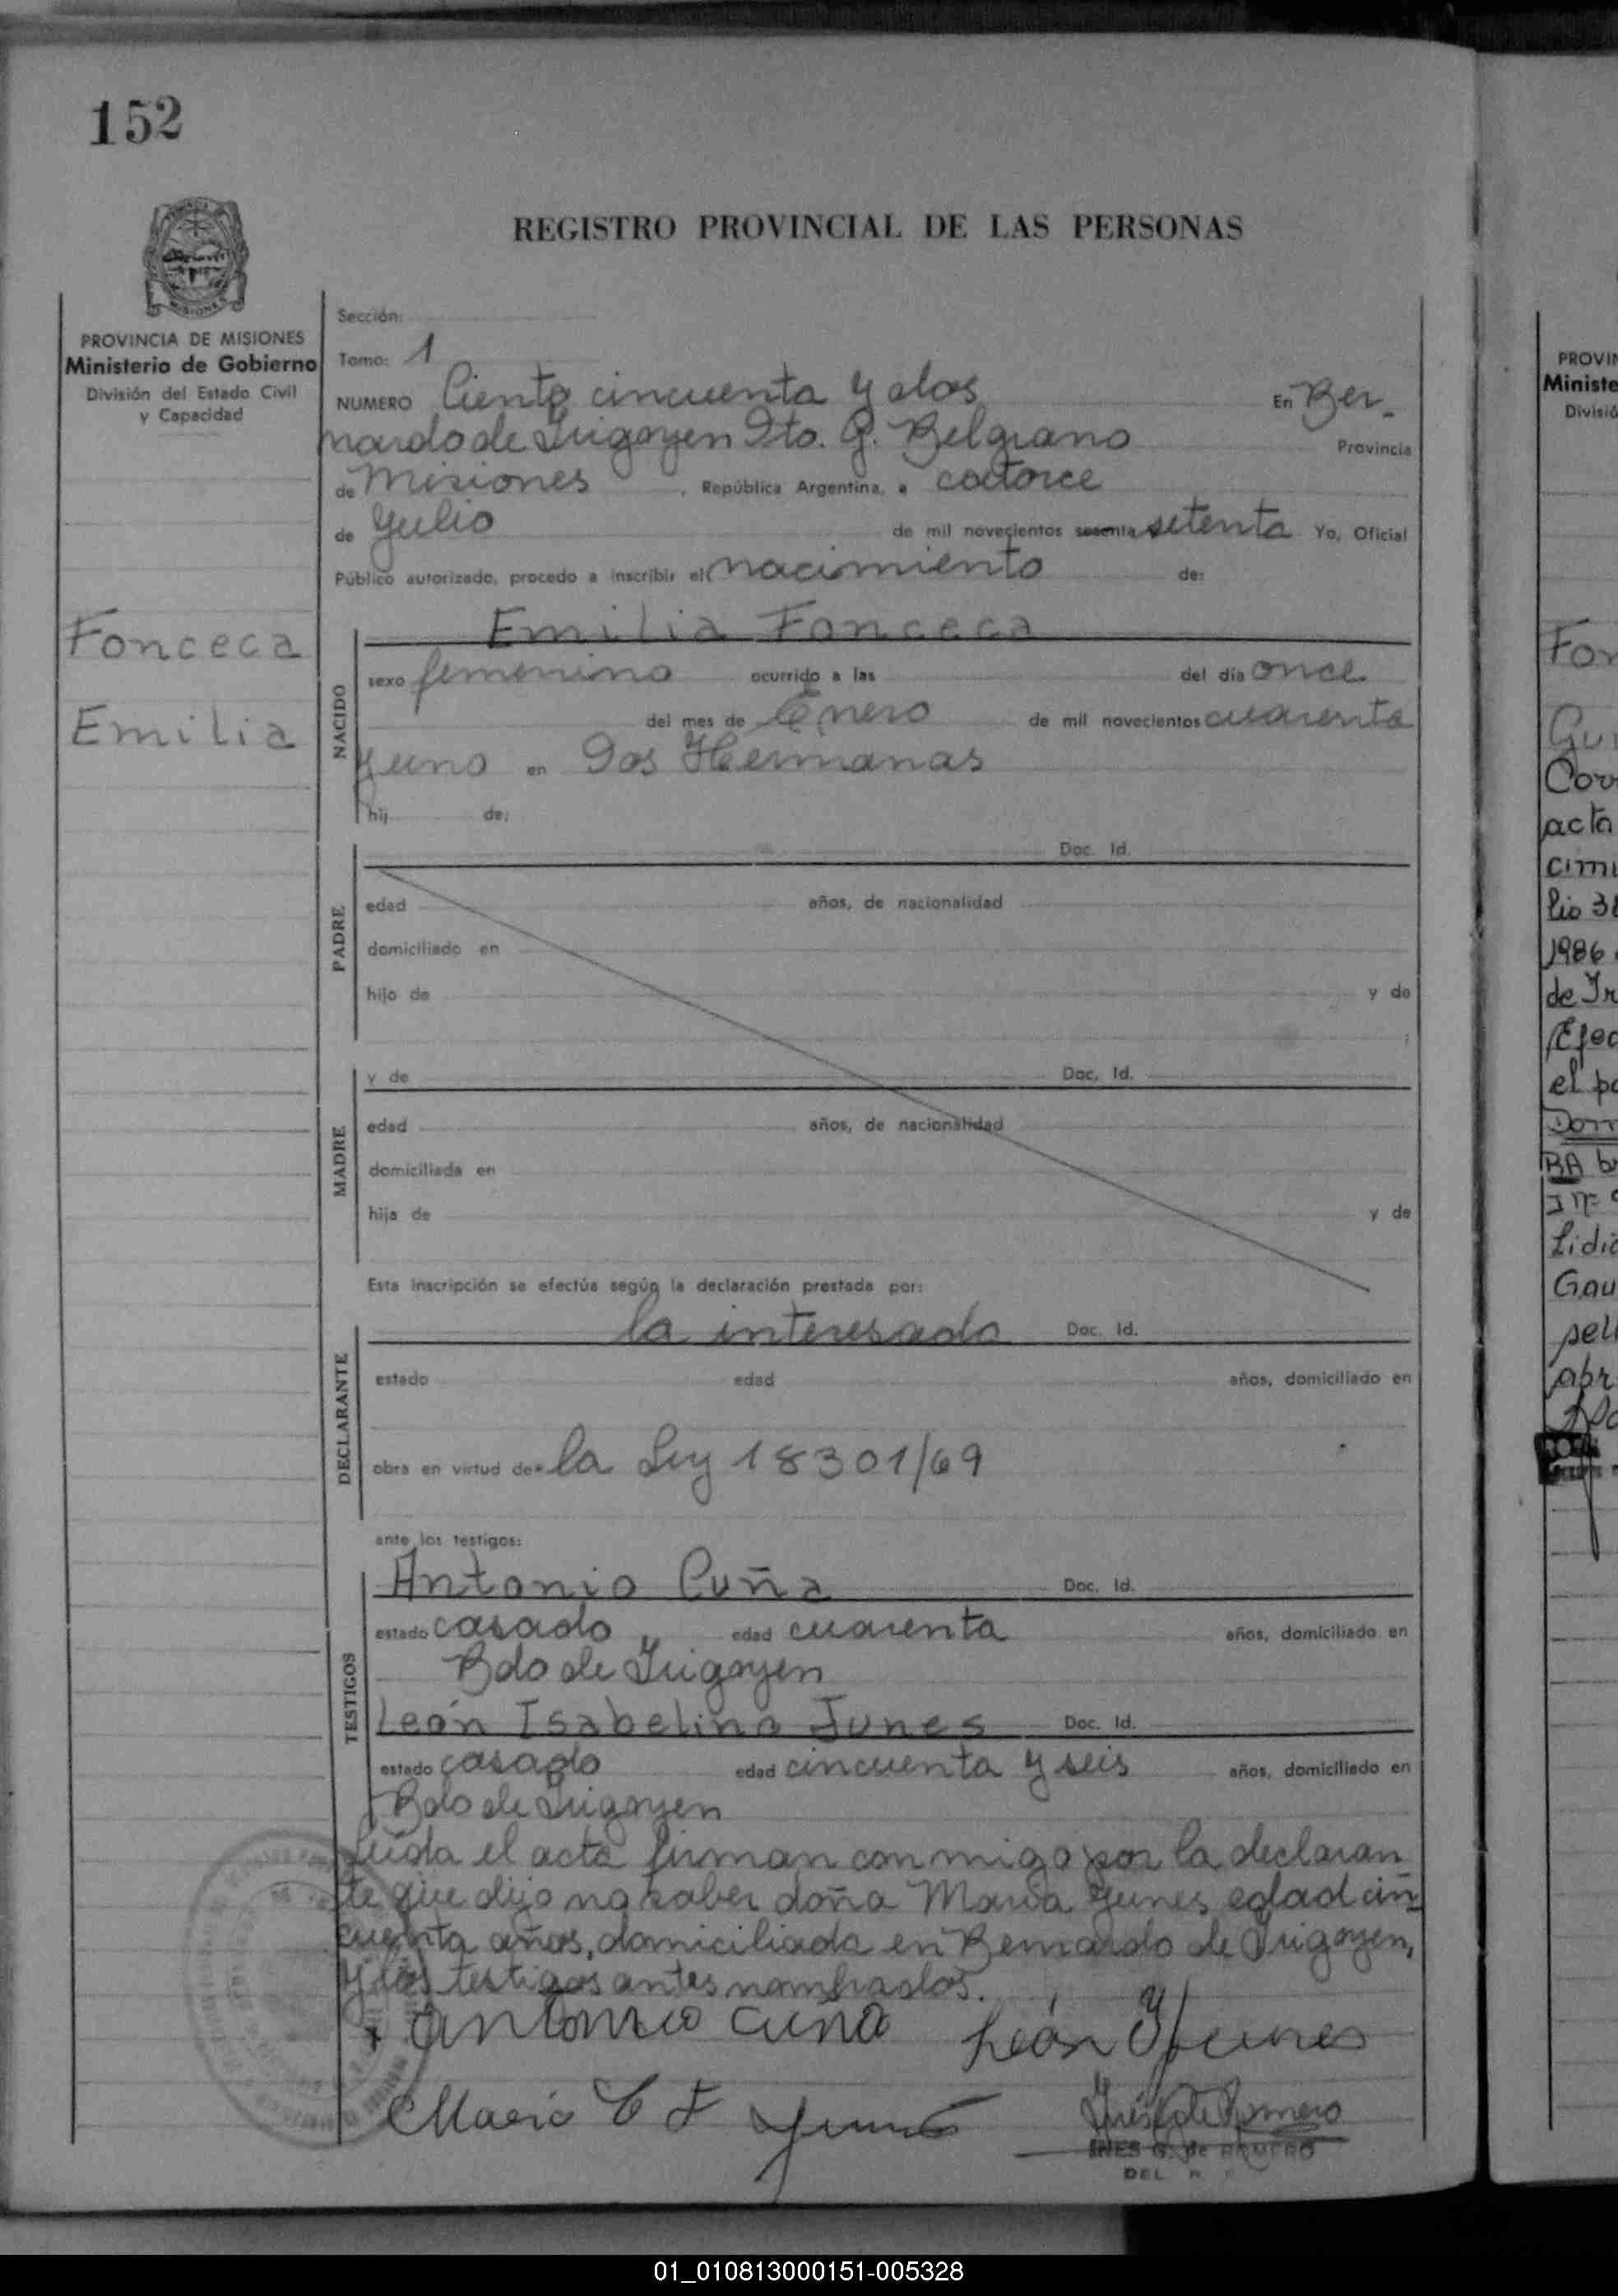 152
REGISTRO PROVINCIAL DE LAS PERSONAS
PROVINCIA DE MISIONES
Ministerio de Gobierno
División del Estado Civil
y Capacidad
Sección:
Tomo: 1
NUMERO Ciento cincuenta y dos En Ber-
nardo de Irigoyen Dto. G. Belgrano Provincia
de Misiones, República Argentina, a catorce
de Julio de mil novecientos sesenta setenta Yo, Oficial
Público autorizado, procedo a inscribir el nacimiento de:
Fonceca
Emilia
NACIDO
Emilia Fonceca
sexo femenino ocurrido a las del día once
del mes de Enero de mil novecientos cuarenta
y uno en Dos Hermanas
hij de;
PADRE
Doc. Id.
edad años, de nacionalidad
domiciliado en
hijo de y de
;
MADRE
y de Doc. Id.
edad años, de nacionalidad
domiciliada en
hija de y de
Esta inscripción se efectúa según la declaración prestada por:
DECLARANTE
la interesada Doc. Id.
estado edad años, domiciliado en
obra en virtud de la Ley 18301/69
ante los testigos:
TESTIGOS
Antonio Cuña Doc. Id.
estado casado edad cuarenta años, domiciliado en
Bdo de Irigoyen
León Isabelino Junes Doc. Id.
estado casado edad cincuenta y seis años, domiciliado en
Bdo de Irigoyen
Leída el acta firman conmigo por la declaran
te que dijo no saber doña Maria Yunes edad cin
cuenta años, domiciliada en Bernardo de Irigoyen,
y los testigos antes nombrados.
Antonio Cuña León Yunes
Maria
INES G. de ROMERO
DEL
PROVIN
Ministe
Divisió
Fon
Gui
Cor
acta
cimi
lio 38
1986
de Ir
el pa
RA
Lidia
Gau
01_010813000151-005328